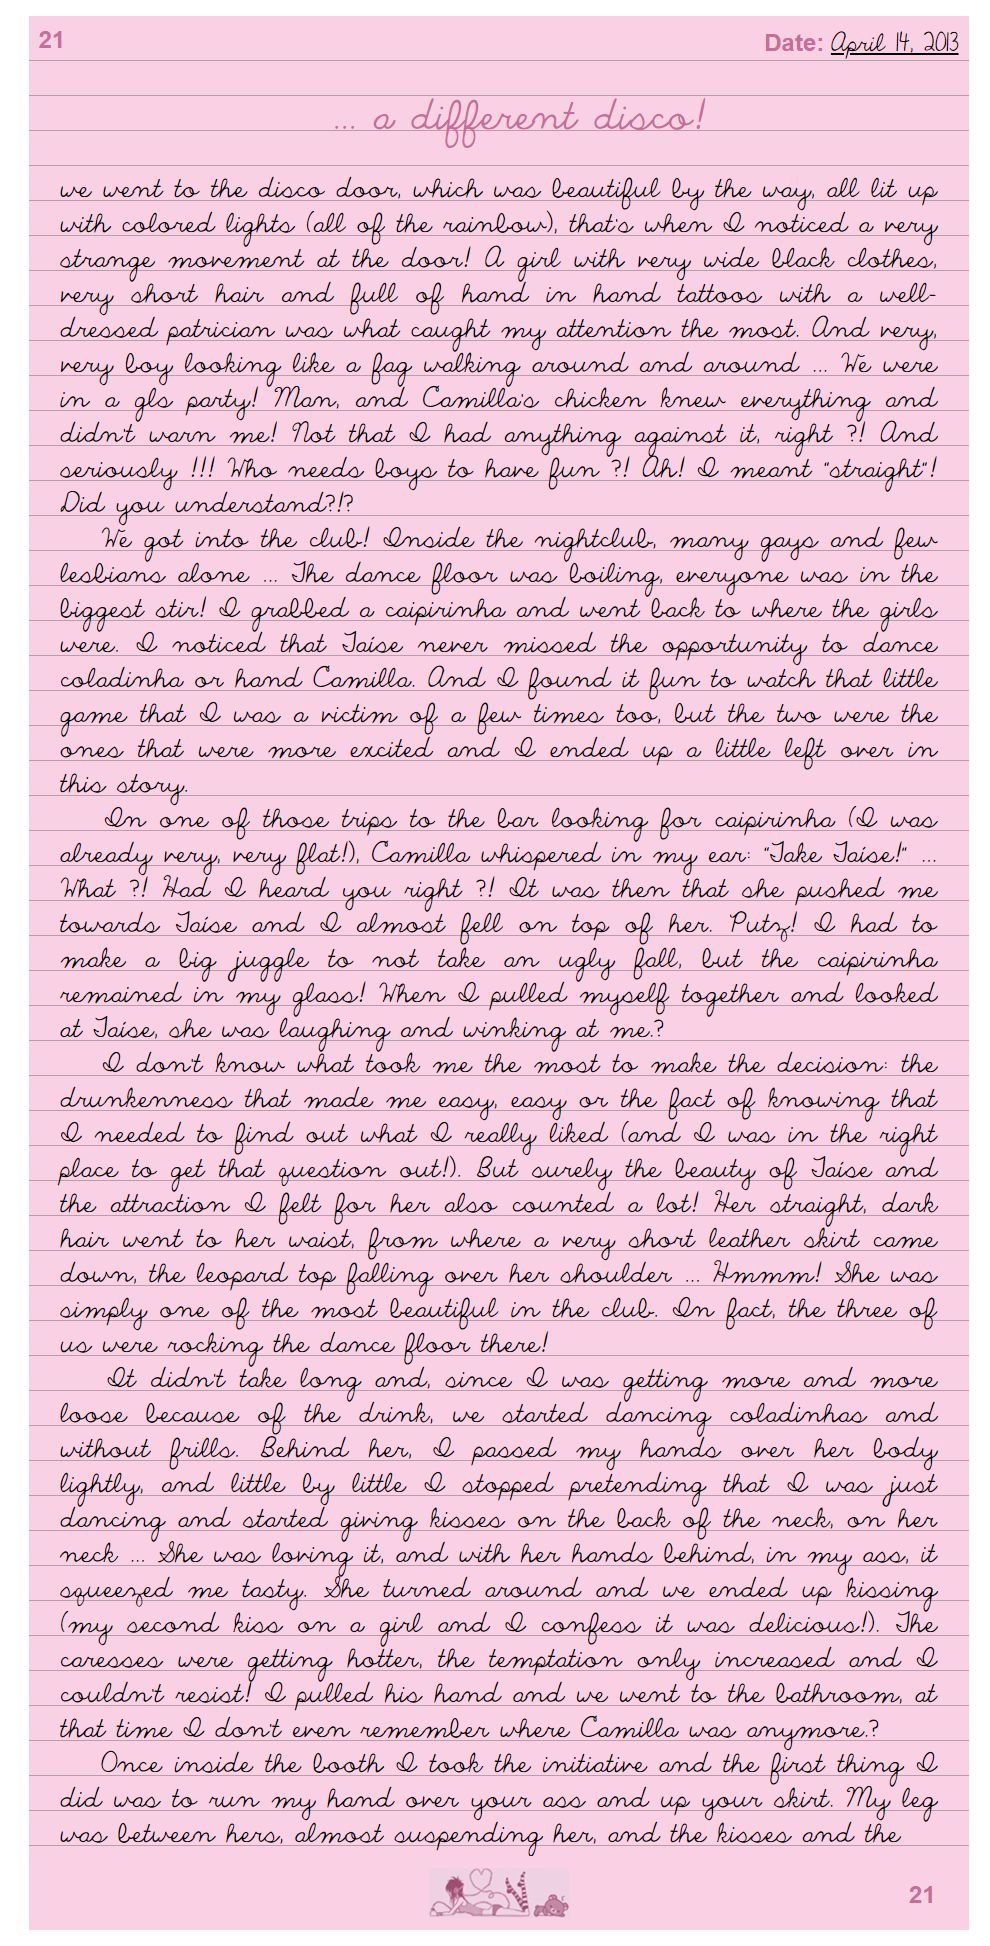 21
Date: April 14, 2013
... a different disco!
we went to the disco door, which was beautiful by the way, all lit up
with colored lights (all of the rainbow), that's when I noticed a very
strange movement at the door! A girl with very wide black clothes,
very short hair and full of hand in hand tattoos with a well-
dressed patrician was what caught my attention the most. And very,
very boy looking like a fag walking around and around ... We were
in a gls party! Man, and Camilla's chicken knew everything and
didn't warn me! Not that I had anything against it, right ?! And
seriously !!! Who needs boys to have fun ?! Ah! I meant "straight"!
Did you understand?!?
We got into the club! Inside the nightclub, many gays and few
lesbians alone ... The dance floor was boiling, everyone was in the
biggest stir! I grabbed a caipirinha and went back to where the girls
were. I noticed that Taíse never missed the opportunity to dance
coladinha or hand Camilla. And I found it fun to watch that little
game that I was a victim of a few times too, but the two were the
ones that were more excited and I ended up a little left over in
this story.
In one of those trips to the bar looking for caipirinha (I was
already very, very flat!), Camilla whispered in my ear: "Take Taíse!" ...
What ?! Had I heard you right ?! It was then that she pushed me
towards Taíse and I almost fell on top of her. Putz! I had to
make a big juggle to not take an ugly fall, but the caipirinha
remained in my glass! When I pulled myself together and looked
at Taíse, she was laughing and winking at me.?
I don't know what took me the most to make the decision: the
drunkenness that made me easy, easy or the fact of knowing that
I needed to find out what I really liked (and I was in the right
place to get that question out!). But surely the beauty of Taíse and
the attraction I felt for her also counted a lot! Her straight, dark
hair went to her waist, from where a very short leather skirt came
down, the leopard top falling over her shoulder ... Hmmm! She was
simply one of the most beautiful in the club. In fact, the three of
us were rocking the dance floor there!
It didn't take long and, since I was getting more and more
loose because of the drink, we started dancing coladinhas and
without frills. Behind her, I passed my hands over her body
lightly, and little by little I stopped pretending that I was just
dancing and started giving kisses on the back of the neck, on her
neck ... She was loving it, and with her hands behind, in my ass, it
squeezed me tasty. She turned around and we ended up kissing
(my second kiss on a girl and I confess it was delicious!). The
caresses were getting hotter, the temptation only increased and I
couldn't resist! I pulled his hand and we went to the bathroom, at
that time I don't even remember where Camilla was anymore.?
Once inside the booth I took the initiative and the first thing I
did was to run my hand over your ass and up your skirt. My leg
was between hers, almost suspending her, and the kisses and the
21